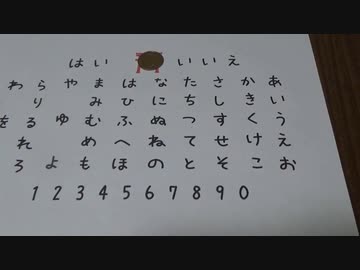 はい いいえ
わ ら や ま は な た さ か あ
り み ひ に ち し き い
を る ゆ む ふ ぬ つ す く う
れ め へ ね て せ け え
ろ よ も ほ の と そ こ お
1 2 3 4 5 6 7 8 9 0